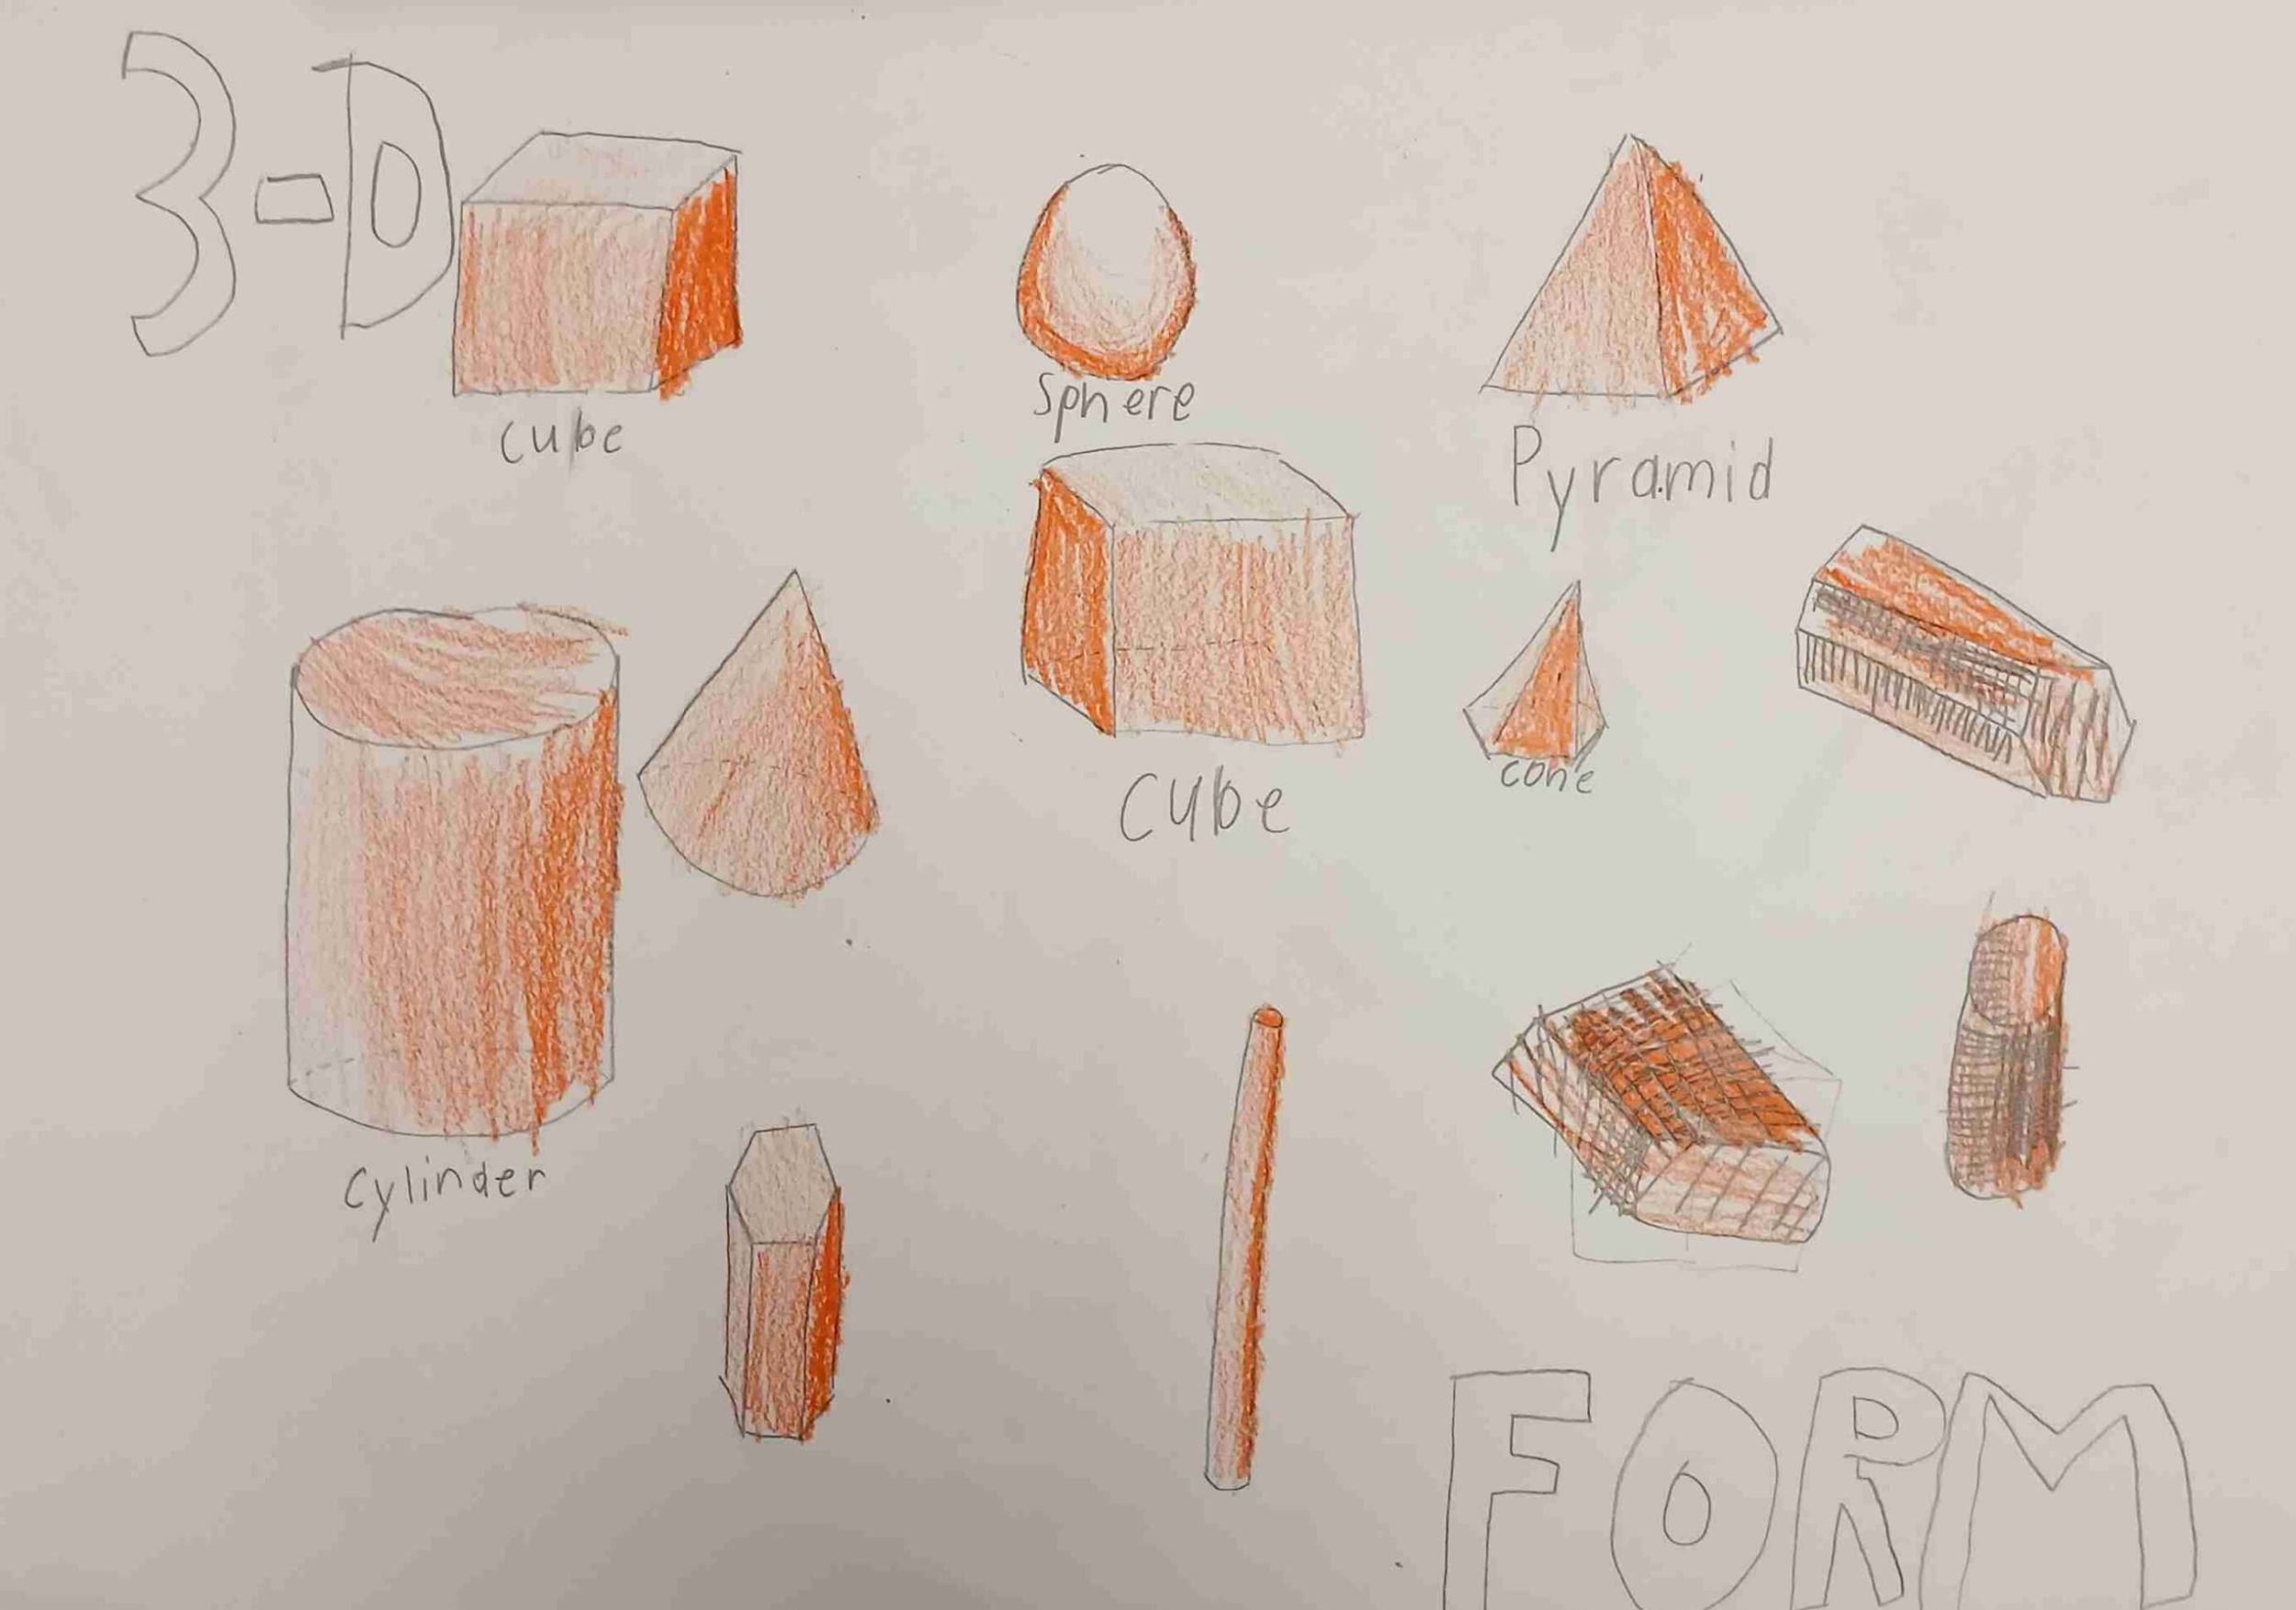 3-D
cube
sphere
Pyramid
cube
cone
cylinder
FORM